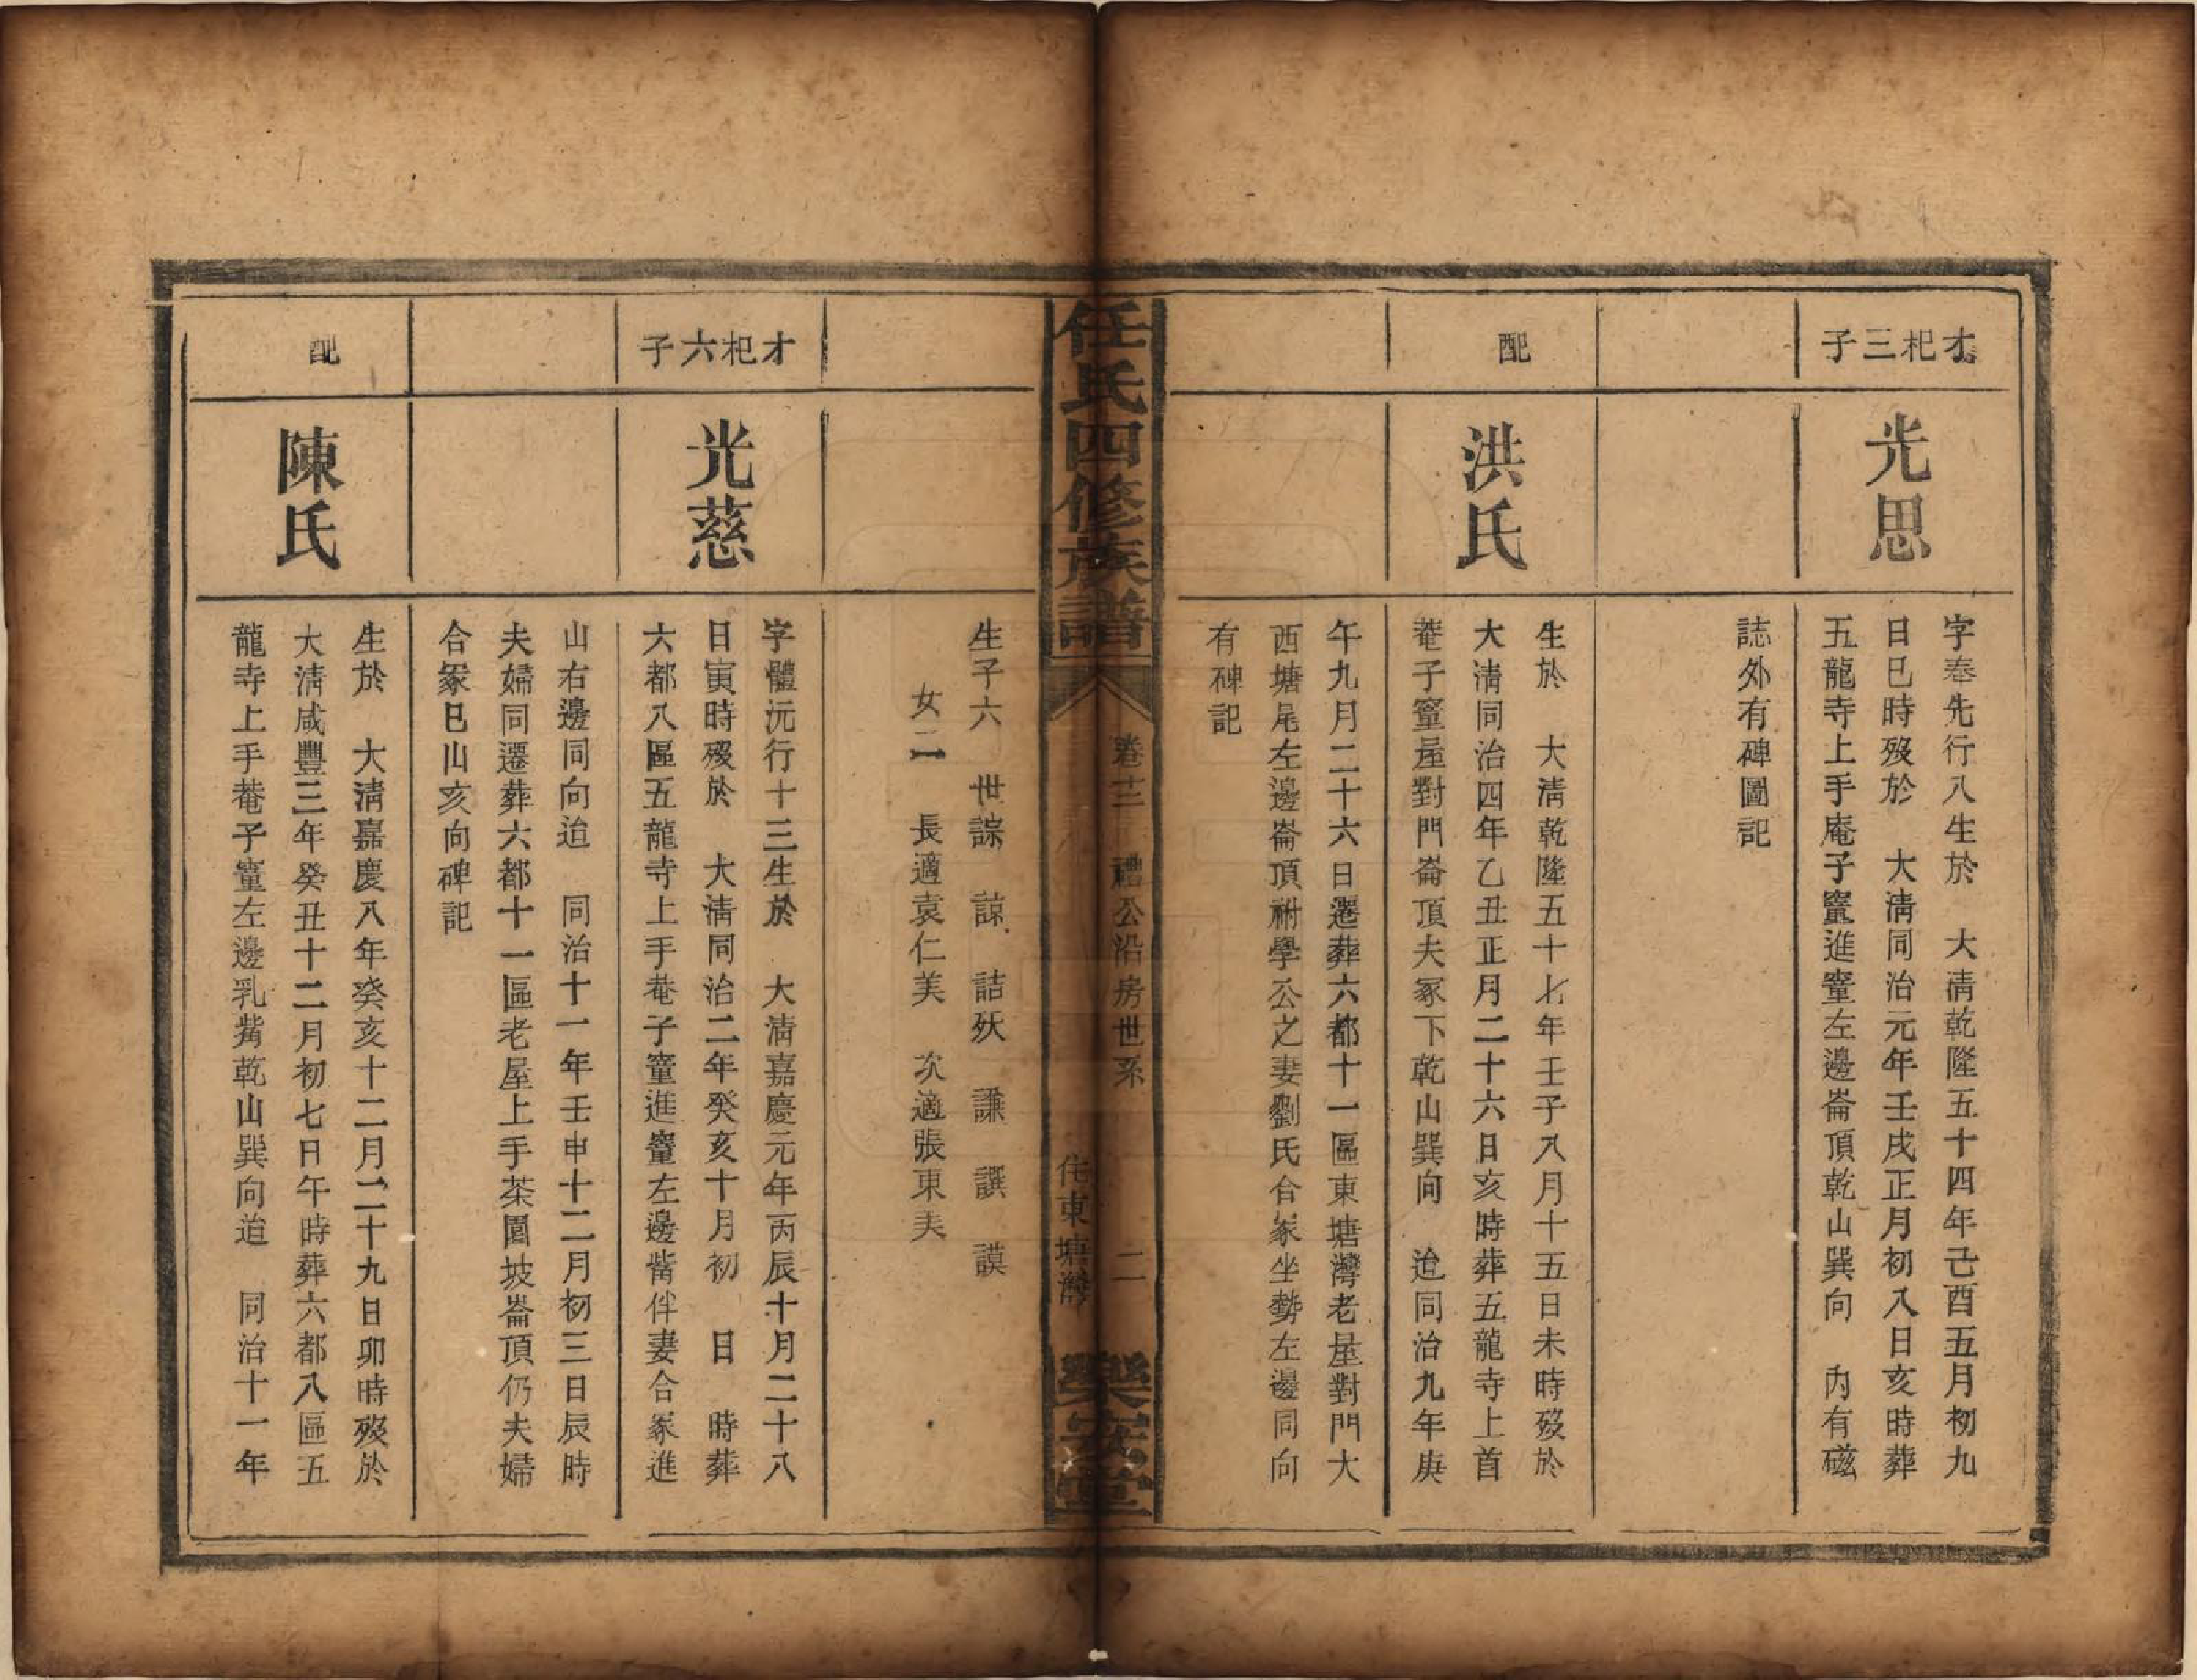 才杞三子
光思
字奉先行八生於　大清乾隆五十四年己酉五月初九
日巳時歿於　大清同治元年壬戌正月初八日亥時葬
五龍寺上手庵子窰進窰左邊崙頂乾山巽向　內有磁
誌外有碑圖記
配
洪氏
生於　大清乾隆五十七年壬子八月十五日未時歿於
大清同治四年乙丑正月二十六日亥時葬五龍寺上首
菴子窰屋對門崙頂夫冢下乾山巽向　迨同治九年庚
午九月二十六日遷葬六都十一區東塘灣老屋對門大
西塘尾左邊崙頂祔學公之妻劉氏合冢坐勢左邊同向
有碑記
任氏四修族譜
卷十三　禮公沿房世系　二
住東塘灣
樂安堂
生子六　世誴　諒　詰殀　謙　譔　謨
女二　長適袁仁美　次適張東美
才杞六子
光慈
字體沅行十三生於　大清嘉慶元年丙辰十月二十八
日寅時歿於　大清同治二年癸亥十月初　日　時葬
六都八區五龍寺上手菴子窰進窰左邊觜伴妻合冢進
山右邊同向迨　同治十一年壬申十二月初三日辰時
夫婦同遷葬六都十一區老屋上手茶園坡崙頂仍夫婦
合冢巳山亥向碑記
配
陳氏
生於　大清嘉慶八年癸亥十二月二十九日卯時歿於
大清咸豐三年癸丑十二月初七日午時葬六都八區五
龍寺上手菴子窰左邊乳觜乾山巽向迨　同治十一年